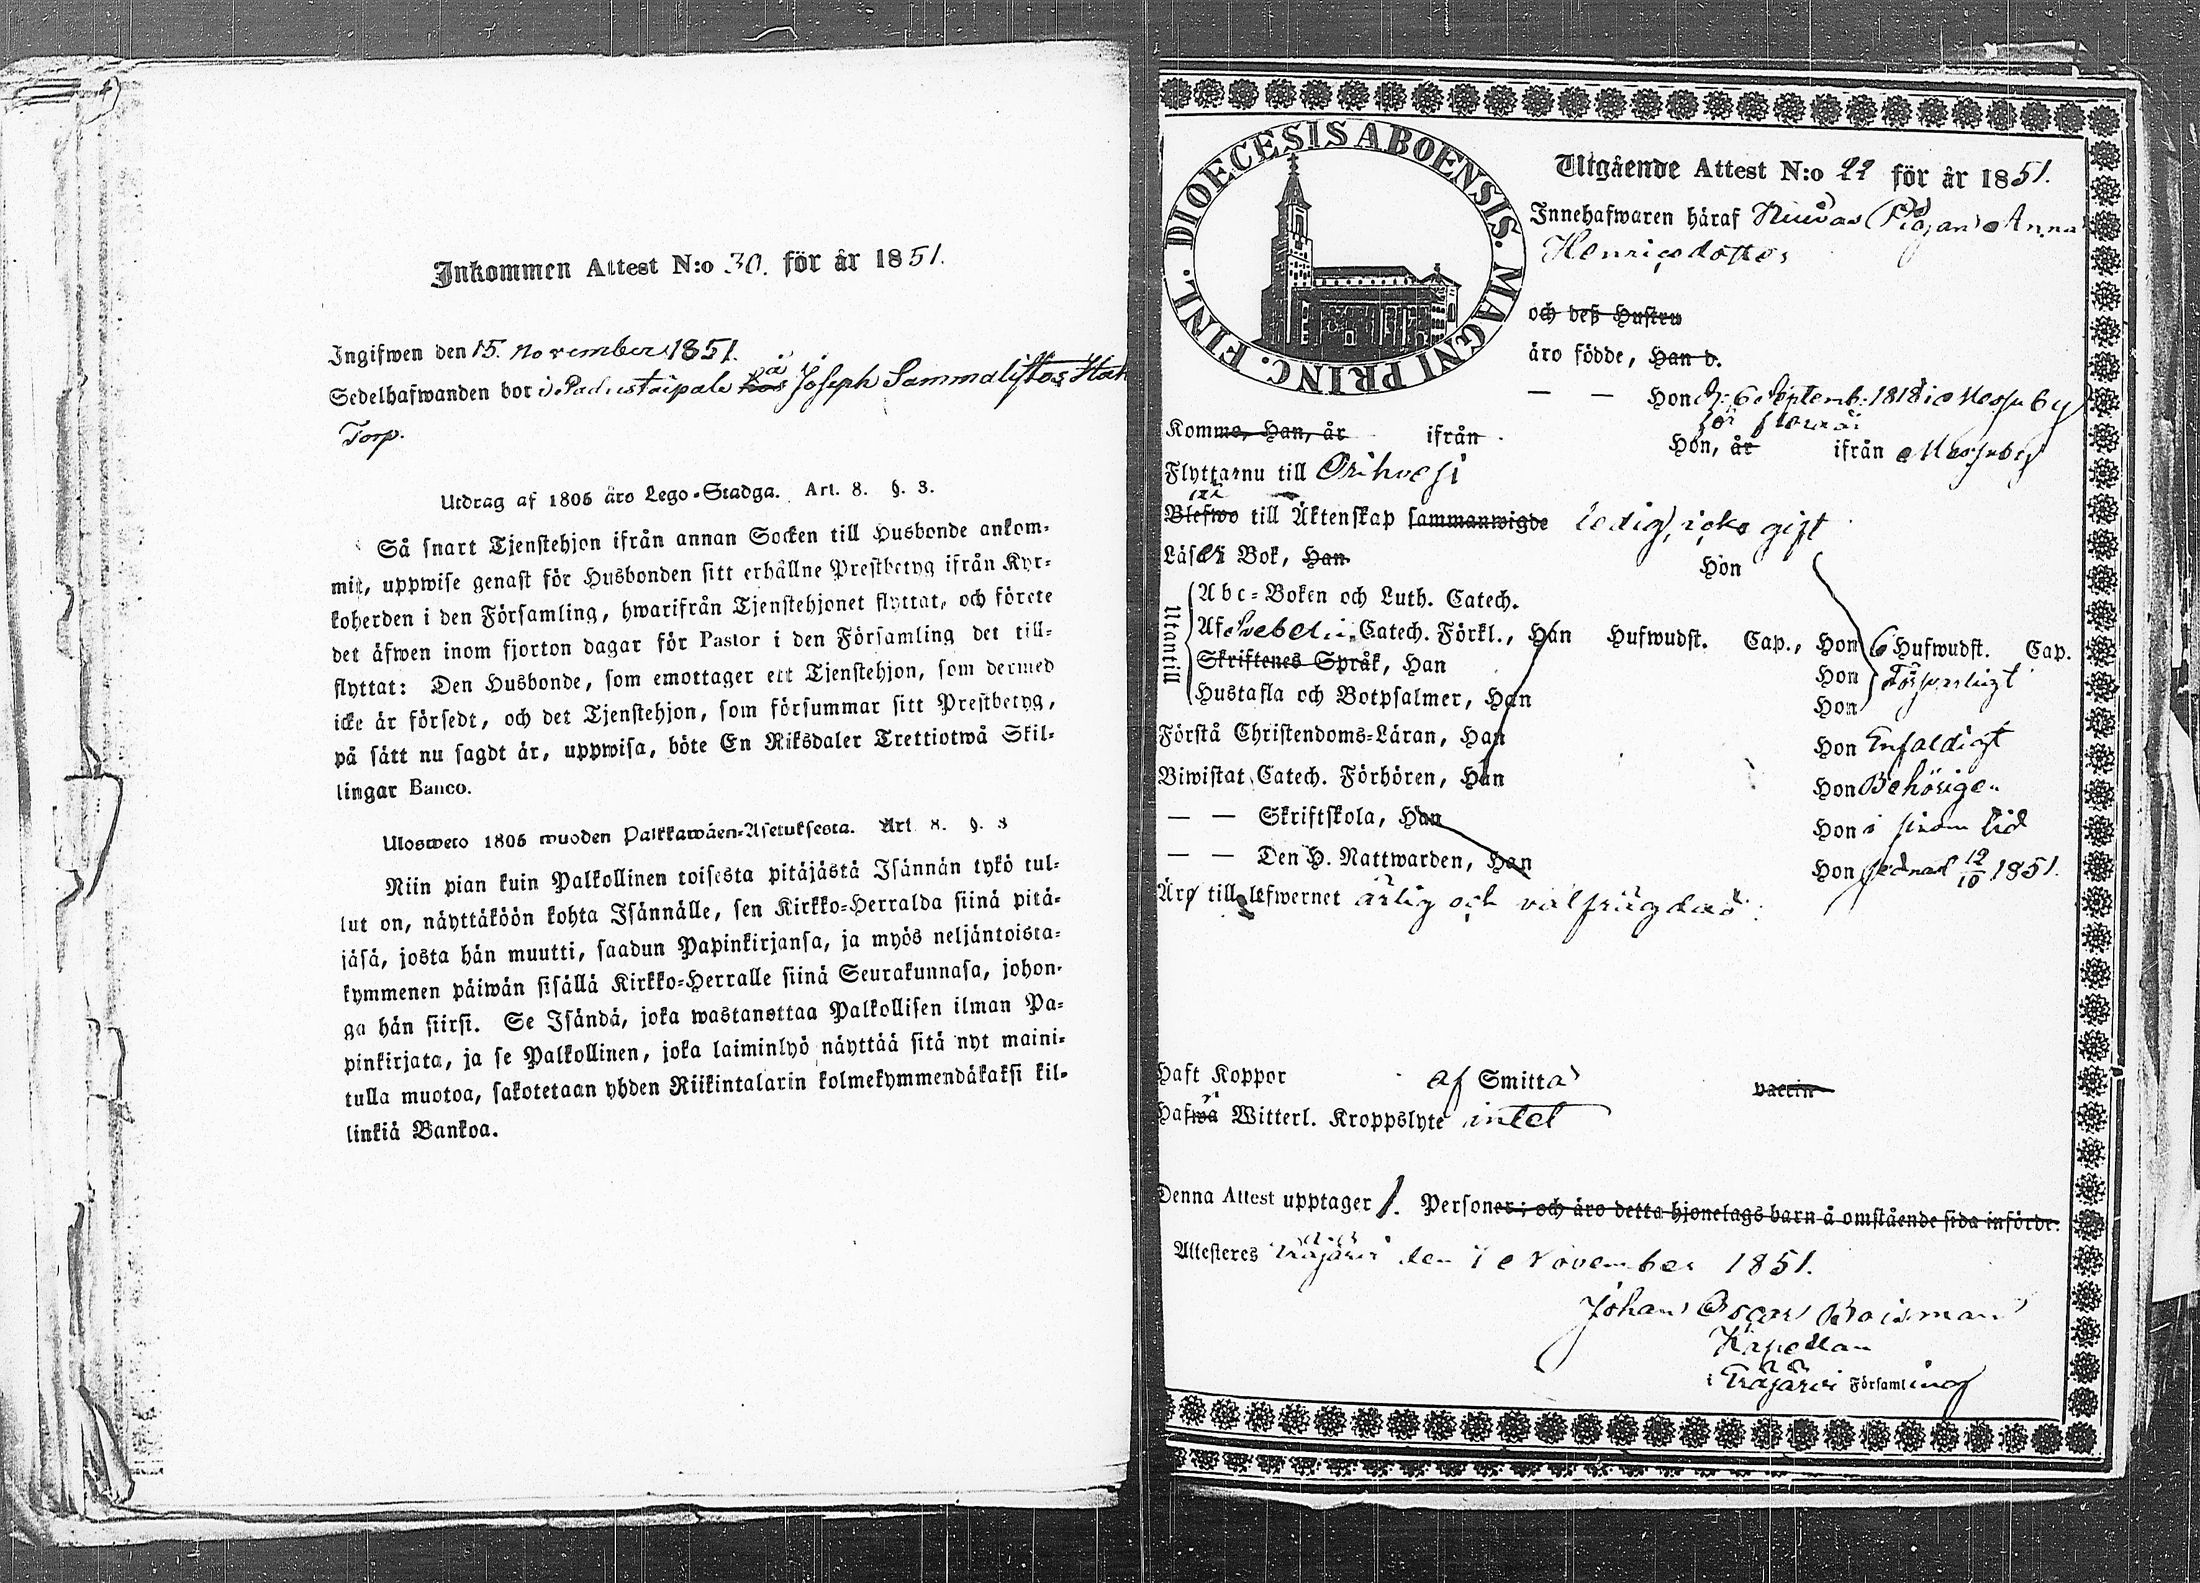 Inkommen Attest N:o 30. för år 1851.
Ingifwen den 15. November 1851.
Sedelhafwanden bor i Padustaipale hos å Joseph Sammalistos
Torp.
Utdrag af 1805 års Lego-Stadga. Art. 8. §. 3.
Så snart Tjenstehjon ifrån annan Socken till Husbonde ankom-
mit, uppwise genast för Husbonden sitt erhållne Prestbetyg ifrån Kyr-
koherden i den Församling, hwarifrån Tjenstehjonet flyttat, och förete
det äfwen inom fjorton dagar för Pastor i den Församling det till-
flyttat: Den Husbonde, som emottager ett Tjenstehjon, som dermed
icke är försedt, och det Tjenstehjon, som försummar sitt Prestbetyg,
på sätt nu sagdt är, uppwisa, böte En Riksdaler Trettiotwå Skil-
lingar Banco.
Ulosweto 1805 wuoden Palkkawäen-Asetuksesta. Art. 8. §. 3
Niin pian kuin Palkollinen toisesta pitäjästä Isännän tykö tul-
lut on, näyttäköön kohta Isännälle, sen Kirkko-Herralda siinä pitä-
jäsä, josta hän muutti, saadun Papinkirjansa, ja myös neljäntoista-
kymmenen päiwän sisällä Kirkko-Herralle siinä Seurakunnasa, johon-
ga hän siirsi. Se Isändä, joka wastanottaa Palkollisen ilman Pa-
pinkirjata, ja se Palkollinen, joka laiminlyö näyttää sitä nyt maini-
tulla muotoa, sakotetaan yhden Riikintalarin kolmekymmendäkaksi kil-
linkiä Bankoa.
DIOECESIS ABOENSIS. MAGNI PRINC. FINL.
Utgående Attest N:o 22 för år 1851.
Innehafwaren häraf Huswas Pigan Anna
Henricsdotter
och deß Hustru
äro födde, Han d.
— — Hon d: 6 Septemb. 1818 i Messuby
för flera år
Komme, Han, år ifrån Hon, år ifrån Messuby
Flytta nu till Orihvesi
Blefwo till Äktenskap sammanwigde ledig, icke gift
Läser i Bok, Han Hon
Utantill
Abc-Boken och Luth. Catech.
Af Svebelii Catech. Förkl., Han Hufwudst. Cap., Hon 6 Hufwudst. Cap.
Skriftenes Språk, Han Hon Försvarligt
Hustafla och Botpsalmer, Han Hon
Förstå Christendoms-Läran, Han Hon Enfaldigt
Biwistat Catech. Förhören, Han Hon Behörigen
— — Skriftskola, Han Hon i sinom tid
— — Den H. Nattwarden, Han Hon sednast 12/10 1851.
Äro till lefwernet ärlig och välfrägdad
Haft Koppor af Smitta vaccin
Hafwa Witterl. Kroppslyte intet
Denna Attest upptager 1. Personer; och äro detta hjonelags barn å omstående sida införde.
Attesteres Träjärvi den 1 November 1851.
Johan Oscar Roisman
Kapellan
i Träjärvi Församling